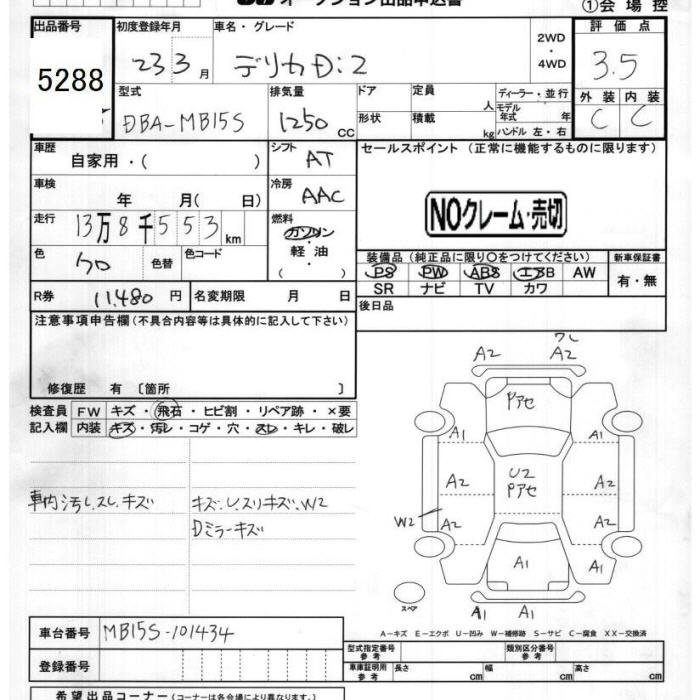 オークション出品申込書 ①会場控
出品番号 初度登録年月 車名・グレード 2WD ・ 4WD 評価点
5288 23 3月 デリカD:2 3.5
型式 排気量 ドア 定員 人 ディーラー・並行 外装 内装
DBA-MB15S 1250 CC 形状 積載 kg モデル年式 年 ハンドル 左・右 C C
車歴 自家用・( ) シフト AT セールスポイント (正常に機能するものに限ります)
車検 年 月( 日) 冷房 AAC
NOクレーム・売切
走行 13万8千553km 燃料 ガソリン 軽油 ( ・ )
色 クロ 色替 色コード
装備品 (純正品に限り○をつけてください) 新車保証書
PS PW ABS エアB AW 有・無
SR ナビ TV カワ
R券 11,480円 名変期限 月 日 後日品
注意事項申告欄 (不具合内容等は具体的に記入して下さい)
修復歴 有 〔箇所 〕
検査員 FW キズ・飛石・ヒビ割・リペア跡・×要
記入欄 内装 キズ・汚レ・コゲ・穴・スレ・キレ・破レ
車内汚レ.スレ.キズ キズ.U.スリキズ.W2
Dミラーキズ
A2 A2
Pアセ
A1 A1
A2 U2 Pアセ A2
W2 A2 A2
A1 A1
スペア A1 A1
A-キズ E-エクボ U-凹み W-補修跡 S-サビ C-腐食 XX-交換済
車台番号 MB15S-101434
型式指定番号 参考 類別区分番号 参考
登録番号
車庫証明用 参考 長さ cm 幅 cm 高さ cm
希望出品コーナー (コーナーは各会場により異なります。)